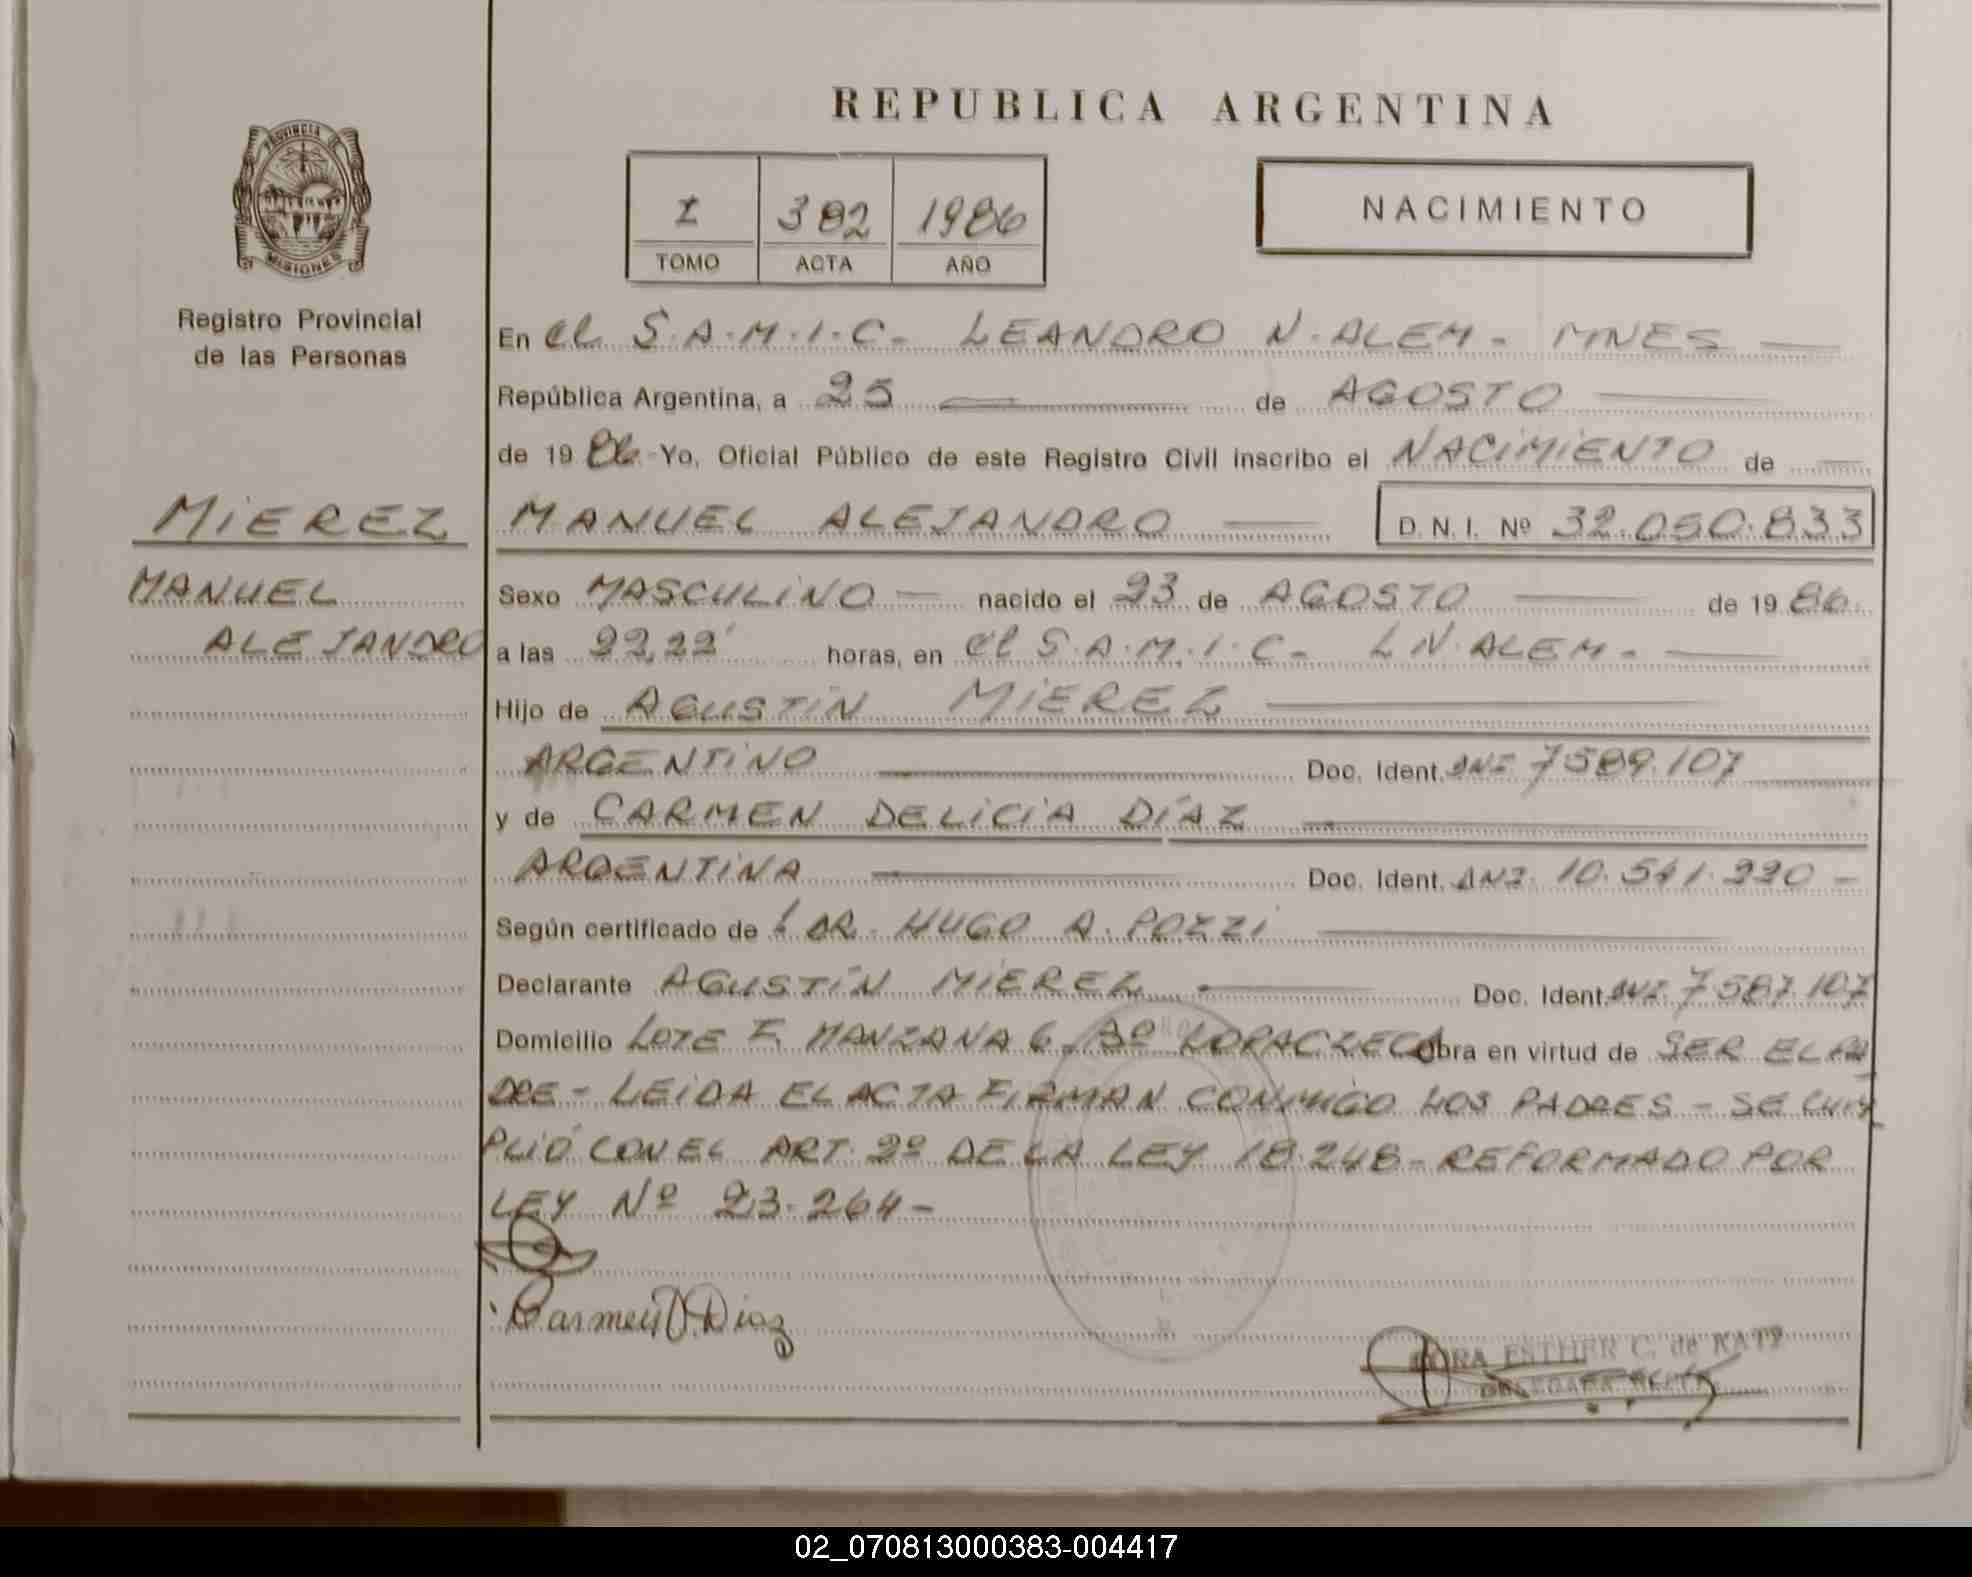 REPUBLICA ARGENTINA
PROVINCIA DE
MISIONES
Registro Provincial
de las Personas
I 382 1986
TOMO ACTA AÑO
NACIMIENTO
En el S.A.M.I.C- LEANDRO N. ALEM - MNES
República Argentina, a 25 de AGOSTO
de 1986 Yo, Oficial Público de este Registro Civil inscribo el NACIMIENTO de
MIEREZ
MANUEL ALEJANDRO D.N.I. Nº 32.050.833
MANUEL
ALEJANDRO
Sexo MASCULINO nacido el 23 de AGOSTO de 1986
a las 22,22' horas, en el S.A.M.I.C- L N. ALEM -
Hijo de AGUSTÍN MIEREZ
ARGENTINO Doc. Ident. DNI 7589.107
y de CARMEN DELICIA DÍAZ
ARGENTINA Doc. Ident. DNI 10.541.220 -
Según certificado de DR. HUGO A. POZZI
Declarante AGUSTÍN MIEREZ Doc. Ident. DNI 7587.107
Domicilio LOTE F. MANZANA 6. Bº Obra en virtud de SER EL PA
DRE - LEIDA EL ACTA FIRMAN CONMIGO LOS PADRES - SE CUM
PLIÓ CON EL ART. 2º DE LA LEY 18.248 - REFORMADO POR
LEY Nº 23.264 -
Carmen D. Diaz
DORA ESTHER C. de KATZ
02_070813000383-004417